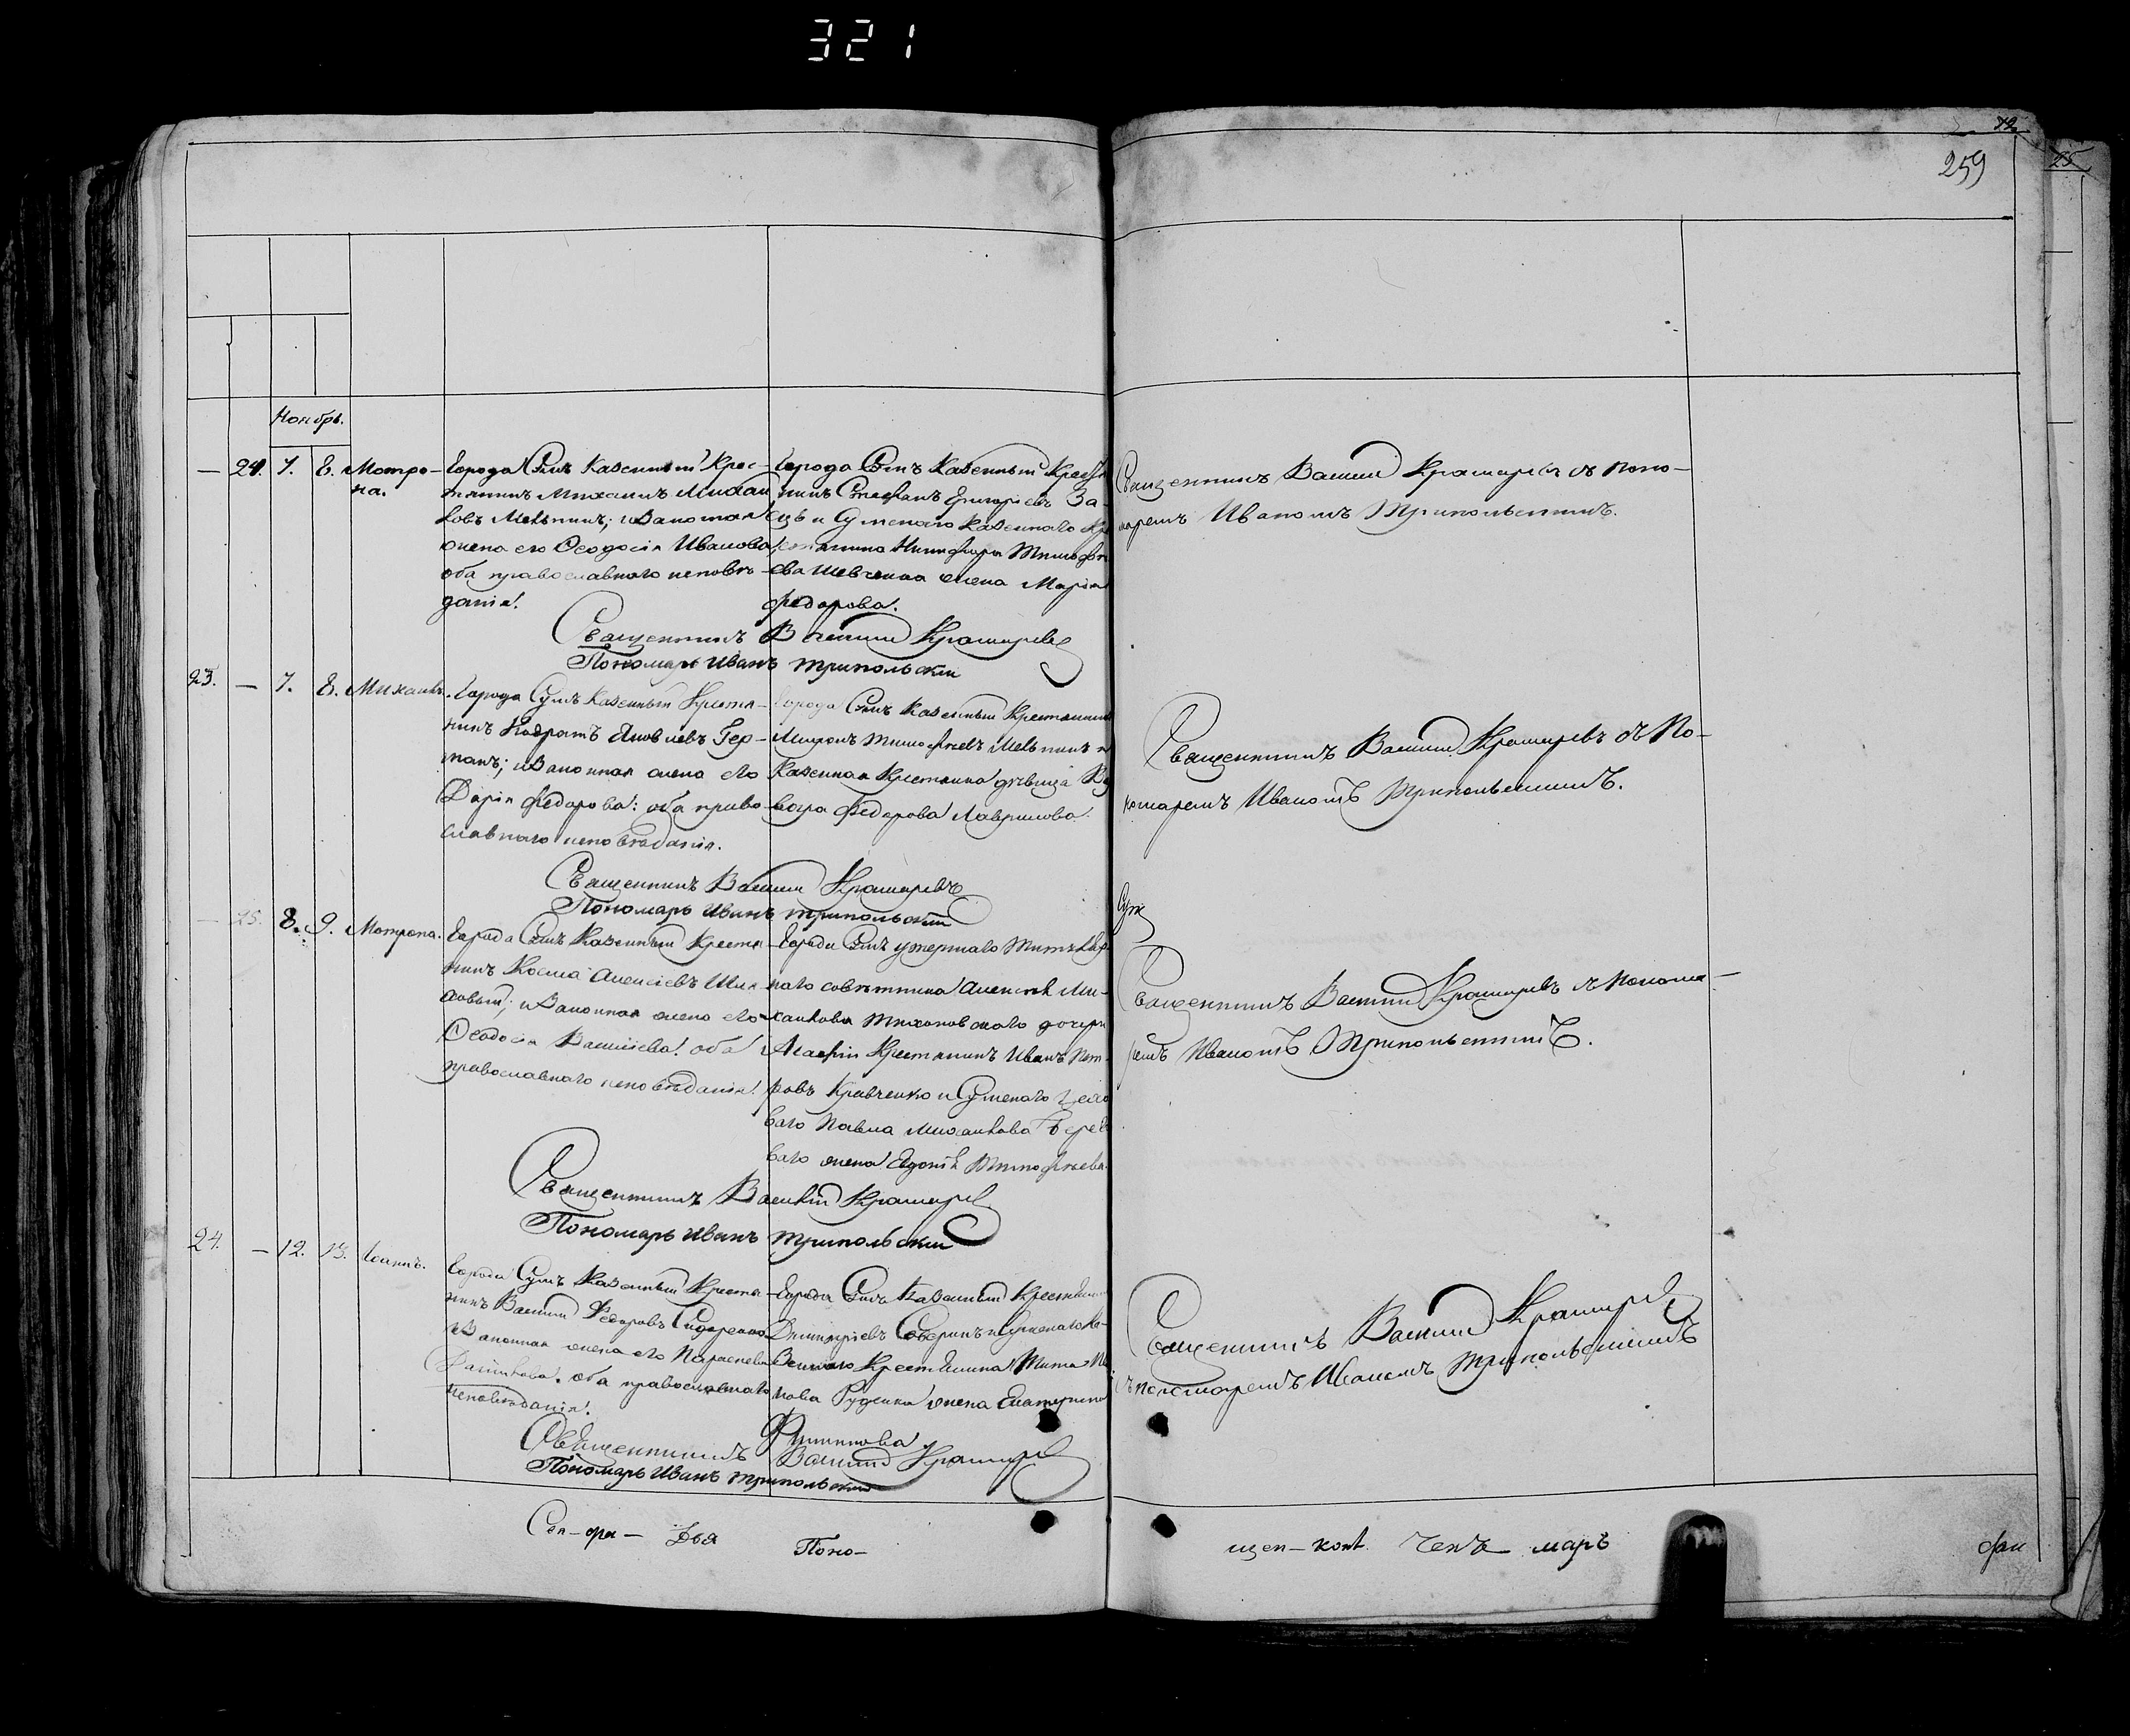 321
259
25
Ноябрь.
— 24. 7. 8. Мотро-
на.
Города Сумъ Казенный Крес-
тянинъ Михаилъ Михаи
ловъ Мельникъ; и Законная
жена его Ѳеодосія Иванова
оба православнаго исповѣ-
данія.
Города Сумъ Казенный Крестя
нинъ Стефанъ Григоріевъ За-
и Сумскаго Казеннаго Кре
стянина Никифора Тимофѣ
ева Шевченка жена Марія
Федорова.
Священникъ Василій Крамаревъ
Пономарь Иванъ Трипольскій
Священникъ Василій Крамаревъ съ Поно-
маремъ Иваномъ Трипольскимъ.
23. — 7. 8. Михаилъ.
Города Сумъ Казенный Крестя-
нинъ Кодратъ Яковлевъ Гер-
манъ; и Законная жена его
Дарія Федорова: оба право-
славнаго исповѣданія.
Города Сумъ Казенный Крестянинъ
Миронъ Тимофѣевъ Мельникъ и
Казенная Крестянка дѣвица Ва
Федорова Лаврикова.
Священникъ Василій Крамаревъ
Пономарь Иванъ Трипольскій
Священникъ Василій Крамаревъ съ По-
номаремъ Иваномъ Трипольскимъ.
— 25. 8. 9. Мотрона.
Города Сумъ Казенный Крестя-
нинъ Косма Алексіевъ Шля
ховый; и Законная жена его
Ѳеодосія Василіева: оба
православнаго исповѣданія.
Города Сумъ умершаго Титуляр
наго совѣтника Алексѣя Ми-
хаилова Тихоновскаго дочери
Агафіи Крестянинъ Иванъ Пет-
ровъ Кравченко и Сумскаго Цехо
ваго Павла Михаилова
ваго жена Евдокія Тимофѣева.
Священникъ Василій Крамаревъ
Пономарь Иванъ Трипольскій
Священникъ Василій Крамаревъ съ Понома-
ремъ Иваномъ Трипольскимъ.
24. — 12. 13. Іоаннъ.
Города Сумъ Казенный Крестя-
нинъ Василій Федоровъ Сидоренко
и Законная жена его Параскева
Даніилова. оба православнаго
исповѣданія.
Города Сумъ Казенный Крестянинъ
Димитріевъ и Сумскаго Ка-
зеннаго Крестянина Тита
нова Руденка жена Екатерина
Филиппова
Священникъ Василій Крамаревъ
Пономарь Иванъ Трипольскій
Священникъ Василій Крамаревъ
съ пономаремъ Иваномъ Трипольскимъ
Поно-
маръ